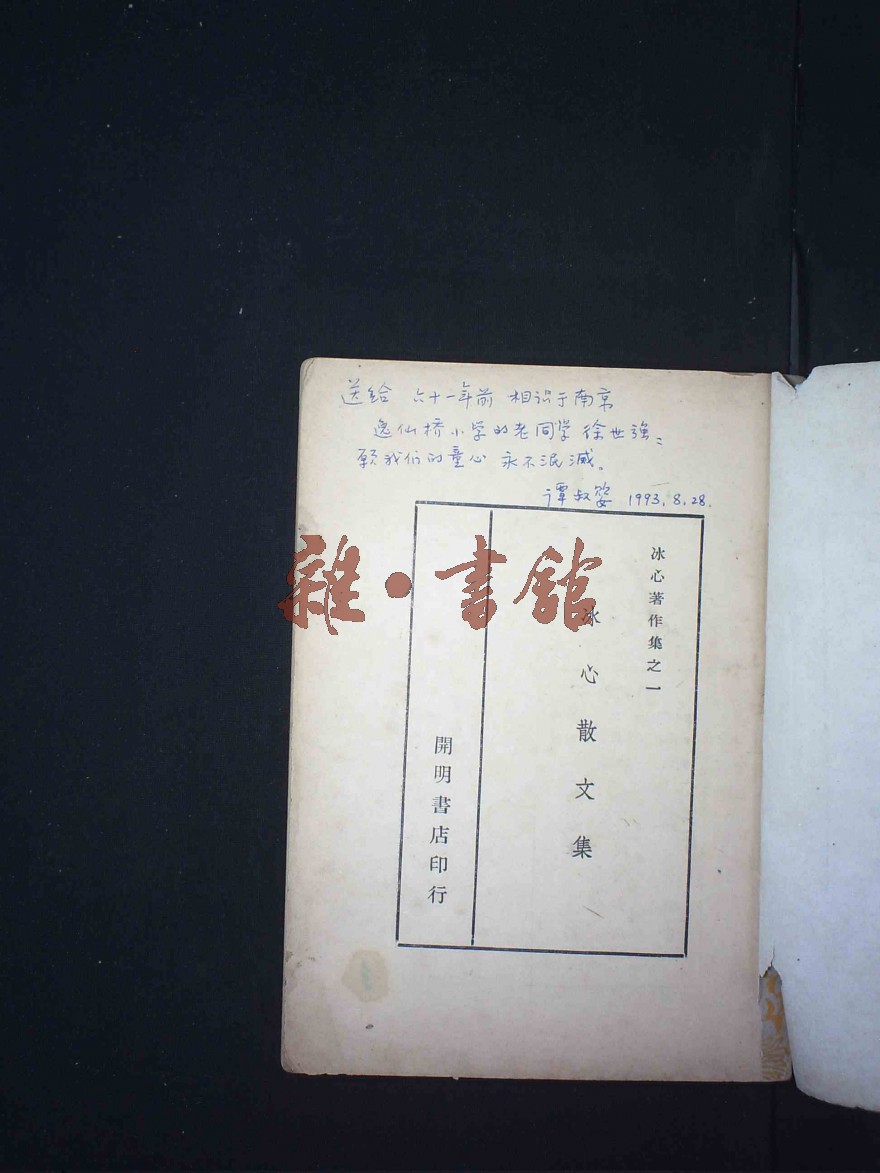 送给 六十一年前 相识于南京
逸仙桥小学的老同学徐世强：
愿我们的童心 永不泯灭。
谭叔 1993.8.28.
冰心著作集之一
冰心散文集
開明書店印行
雜·書館